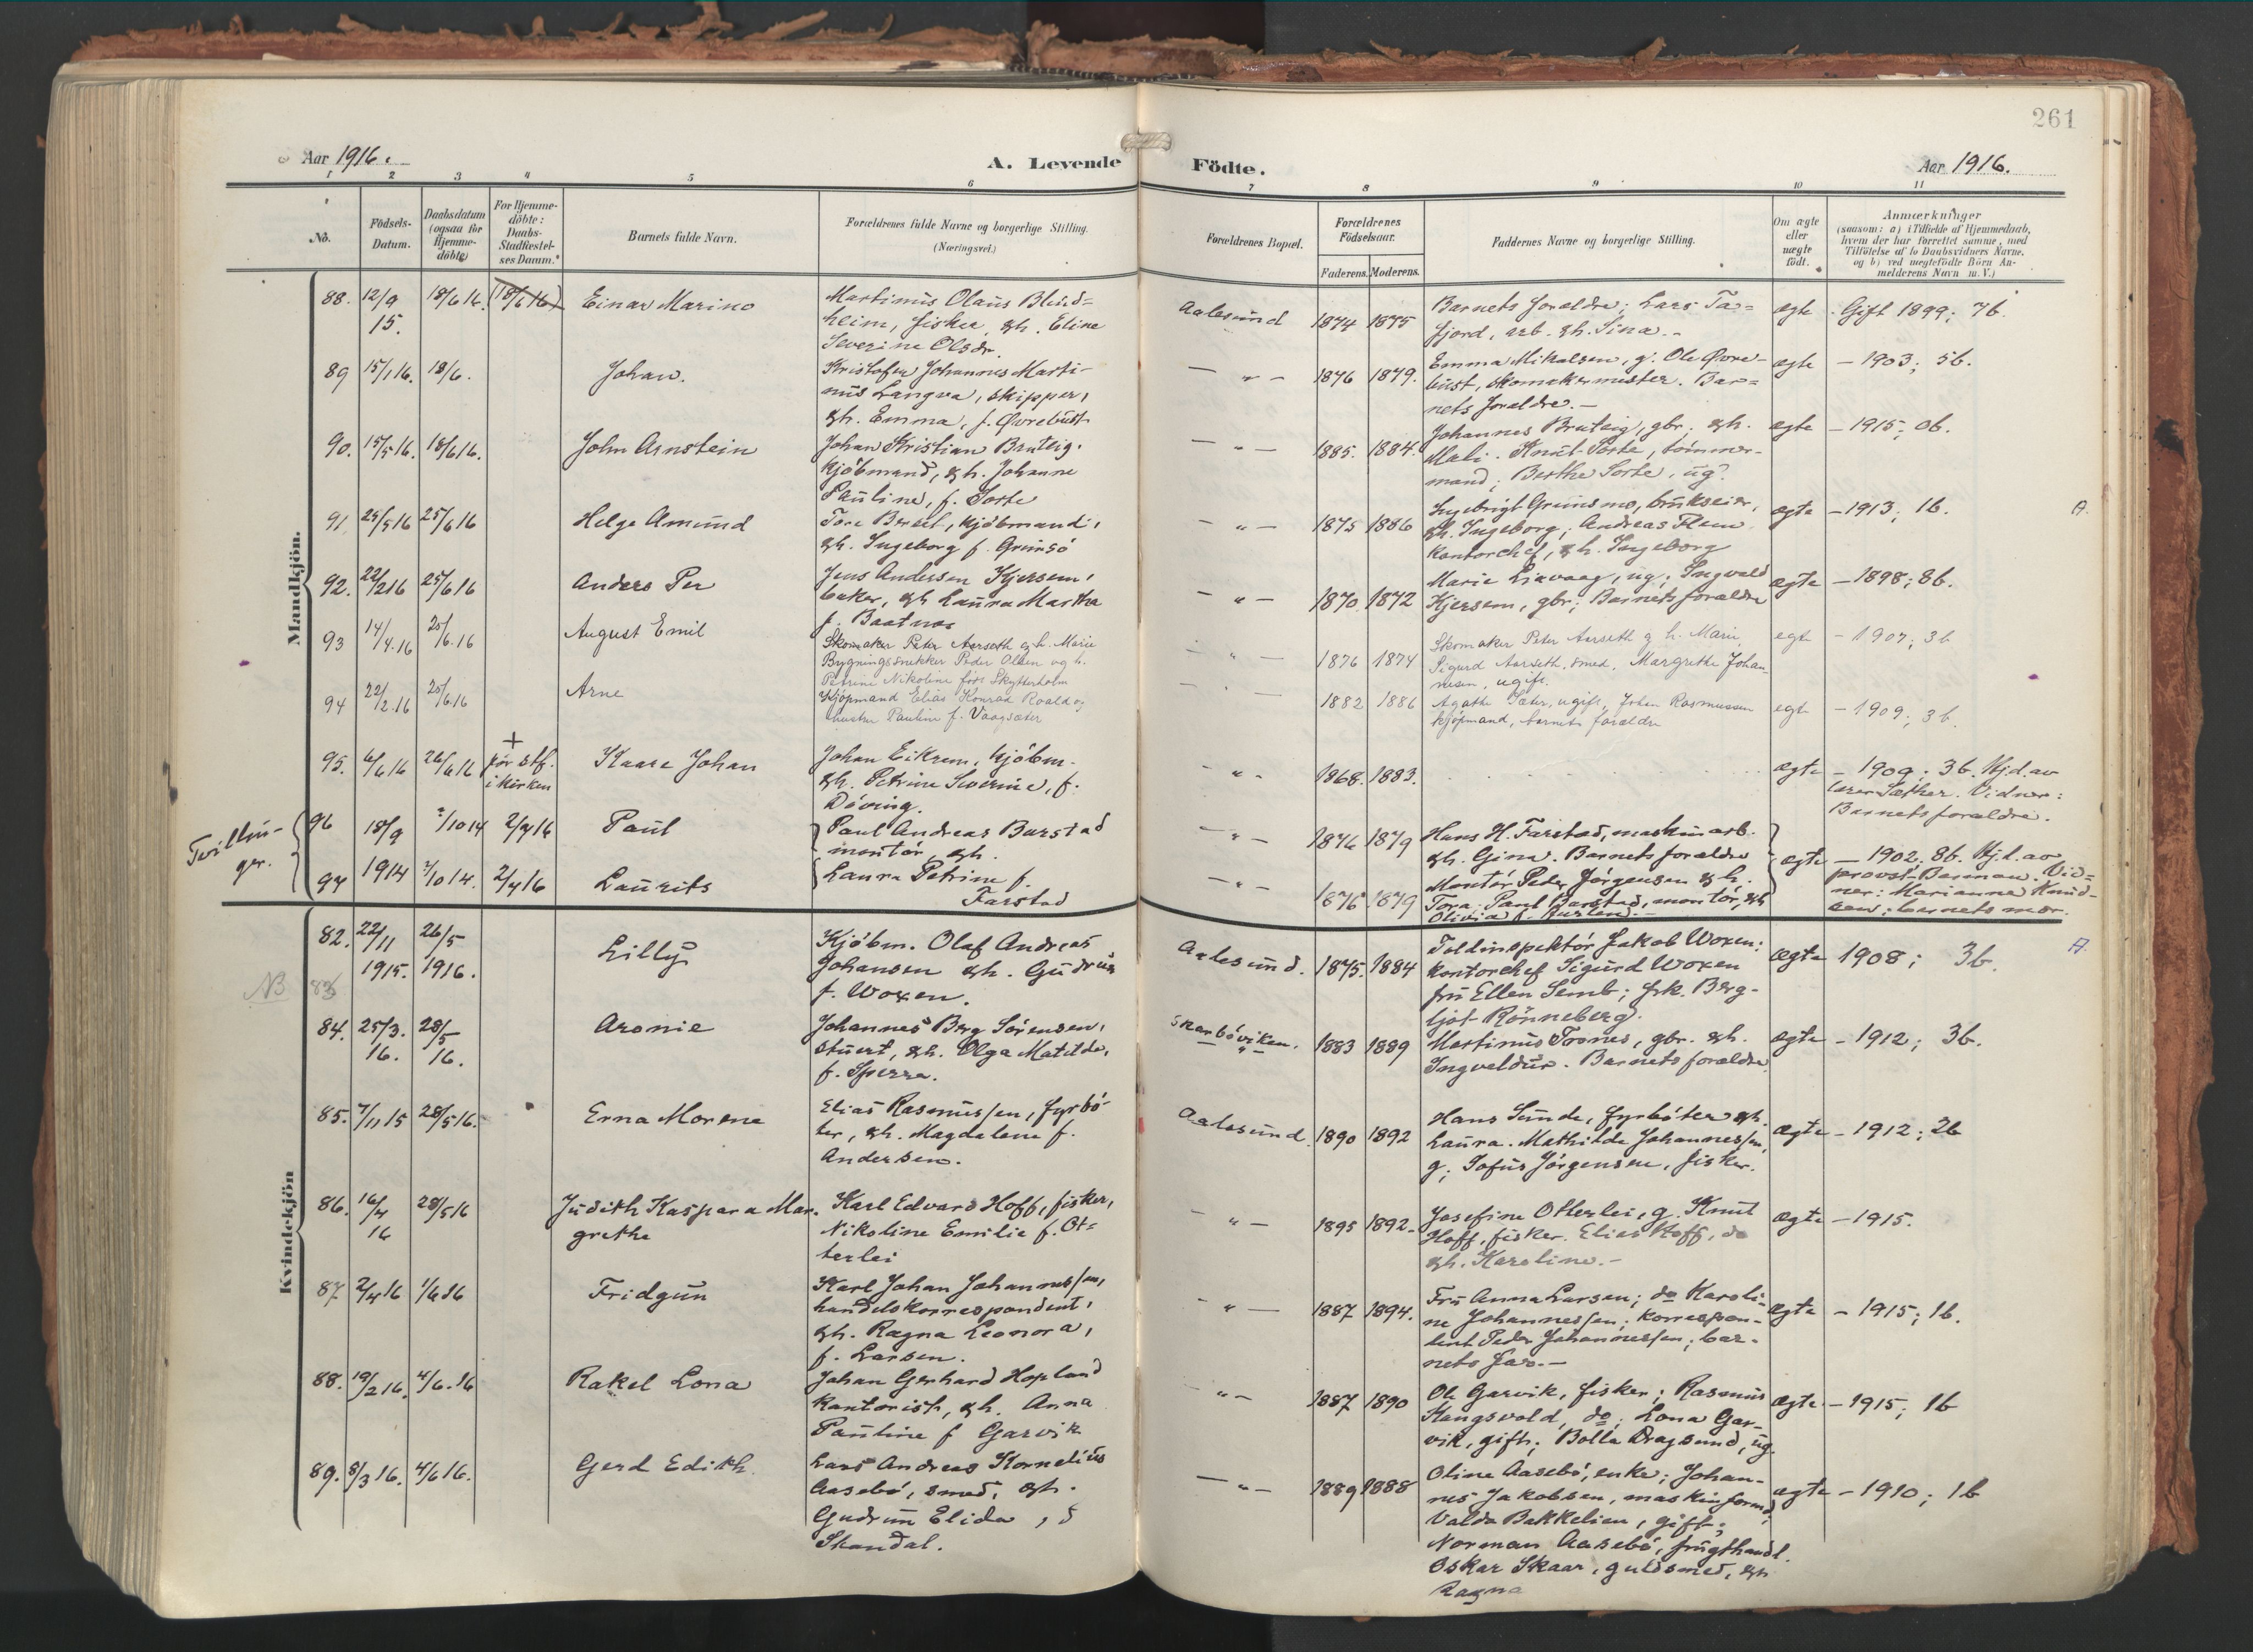 261
Aar 1916.
A. Levende
Födte.
Aar 1916.
1 2 3 4 5 6
7 8 9 10 11
No.
Födsels-
Datum.
Daabsdatum
(ogsaa for
Hjemme-
döbte)
For Hjemme-
döbte:
Daabs-
Stadfæstel-
ses Datum.
Barnets fulde Navn.
Forældrenes fulde Navne og borgerlige Stilling.
(Næringsvei.)
Forældrenes Bopæl.
Forældrenes
Födselsaar.
Faderens. Moderens.
Faddernes Navne og borgerlige Stilling.
Om ægte
eller
uægte
födt.
Anmærkninger
(saasom: a) i Tilfælde af Hjemmedaab,
hvem der har forrettet samme, med
Tilföielse af to Daabsvidners Navne,
og b) ved uægtefödte Börn An-
melderens Navn m. V.)
Mandkjön.
88. 12/9 15. 18/6 16. (18/6 16)
Einar Marino
Martinus Olaus Blind-
heim, fisker, &h. Eline
Severine Olsdr.
Aalesund 1874 1875
Barnets foraldre; Lars Ta-
fjord, arb. &h. Sina.-
ægte Gift 1899; 7b.
89 15/1 16. 18/6.
Johan.
Kristofer Johannes Marti-
nus Langva, skipper,
&h. Emma, f. Øvrebust
— " — 1876 1879.
Emma Mikalsen, g. Ole Øvre-
bust, skomakermester. Bar-
nets foraldre.—
ægte — 1903; 5b.
90. 15/5 16. 18/6 16.
John Arnstein
Johan Kristian Bruteig,
kjöbmand, &h. Johanne
Pauline, f. Sorte
— " — 1885. 1884.
Johannes Bruteig, gbr. &h.
Mali. Knut Sorte, tömmer-
mand; Berthe Sorte, ug.
ægte — 1915; 0b.
91 25/5 16 25/6 16
Helge Amund
Tore Berset, kjöbmand,
&h. Ingeborg f. Grimsö
— " — 1875 1886
Ingebrigt Grimsmo, brukseier,
&h. Ingeborg; Andreas Flem
kontorchef, &h. Ingeborg
ægte — 1913; 1b. A.
92. 22/2 16 25/6 16
Anders Per
Jens Andersen Kjersem,
baker, &h Laura Martha
f. Baatnes
— " — 1870. 1872
Marie Liavaag, ug; Ingvald
Kjersem, gbr; Barnets forældre
ægte — 1898; 8b.
93 14/4.16 25/6.16
August Emil
Skomaker Peter Aarseth &h. Marie
Bygningssnekker Peder Olsen og h.
Petrine Nikoline född Skytterholm
— " — 1876 1874
Skomaker Peter Aarseth g h. Marie,
Sigurd Aarseth, smed, Margrethe Johan-
nesen, ugift.
egte — 1907; 3b
94 22/2.16 25/6.16
Arne
Kjöpmand Elias Konrad Roald og
hustru Pauline f. Vaagsæter
— " — 1882 1886
Agathe Sæter, ugift, Johan Rasmussen
kjöpmand, barnets forældre
egte — 1909; 3b.
95. 6/6 16 26/6 16 + för stf. i kirken
Kaare Johan
Johan Eikrem, kjöbm.
&h. Petrine Severine, f.
Döving.
— " — 1868. 1883.
ægte — 1909; 3b. Hjd. av
lærer Sæther. Vidner:
Barnets forældre.
Tvillin-
ger.
96 18/9 2/10 14 2/7 16
Paul
Paul Andreas Barstad
montör, &h.
— " — 1876 1879
Hans H. Farstad, maskinarb.
&h. Gina. Barnets forældre
97 1914 2/10 14. 2/7 16
Laurits
Laura Petrine f.
Farstad
— " — 1876. 1879
Montör Peder Jörgensen &h.
Tora; Paul Barstad, montör, &h
Olivia f.
ægte — 1902; 8b. Hj.d. av
provst Barman. Vid-
ner: Marianne Knud-
sen; barnets mor.
Kvindekjön
82. 22/11 1915. 26/5 1916.
Lilly
Kjöbm. Olaf Andreas
Johansen &h. Gudrun
f. Woxen.
Aalesund. 1875. 1884
Toldinspektör Jakob Woxen:
Kontorchef Sigurd Woxen
fru Ellen Semb; frk. Berg-
ljot Rönneberg.
ægte 1908; 3b. A
NB 83
84. 25/3. 16. 28/5 16.
Aronie
Johannes Berg Sörensen,
stuert, &h. Olga Matilde,
f. Sperre.
Skarböviken. 1883 1889
Martinus Toones, gbr. &h.
Ingveldur. Barnets forældre
ægte — 1912; 3b.
85. 7/11 15 28/5 16.
Erna Morene
Elias Rasmussen, fyrbö-
ter, &h. Magdalene f.
Andersen.
Aalesund. 1890 1892
Hans Sunde, fyrböter &h.
Laura. Mathilde Johannessen,
g; Sofus Jörgensen, fisker.
ægte — 1912; 2b
86. 16/4 16 28/5 16
Judith Kaspara Mar-
grethe
Karl Edvard Hoff, fisker,
Nikoline Emilie f. Ot-
terlei
— " — 1895 1892.
Josefine Otterlei, g. Knut
Hoff, fisker. Elias Hoff, do
&h. Karoline.—
ægte — 1915.
87 2/4 16 1/6 16
Fridgun
Karl Johan Johannessen,
handelskorrespondent,
&h. Ragna Leonora,
f. Larsen.
— " — 1887 1894.
Fru Anna Larsen; do Karoli-
ne Johannessen; korrespon-
dent Peder Johannessen; bar-
nets far.—
ægte — 1915; 1b.
88. 19/2 16. 4/6.16
Rakel Lona
Johan Gerhard Hopland
kontorist, &h. Anna
Pauline f Garvik
— " — 1887 1890
Ole Garvik, fisker; Rasmus
Stangsvold, do; Lona Gar-
vik, gift; Bolla Dragsund, ug.
ægte — 1915; 1b
89. 8/3 16. 4/6 16.
Gerd Edith
Lars Andreas Kornelius
Aasebö, smed, &h.
Gudrun Elida, f
Skandal.
— " — 1889 1888
Oline Aasebö, enke; Johan-
nes Jakobsen, maskinformd,
Valda Bakkelien, gift;
Norman Aasebö, frugthandl.
Oskar Skaar, guldsmed, &h
Ragna
ægte — 1910; 1b